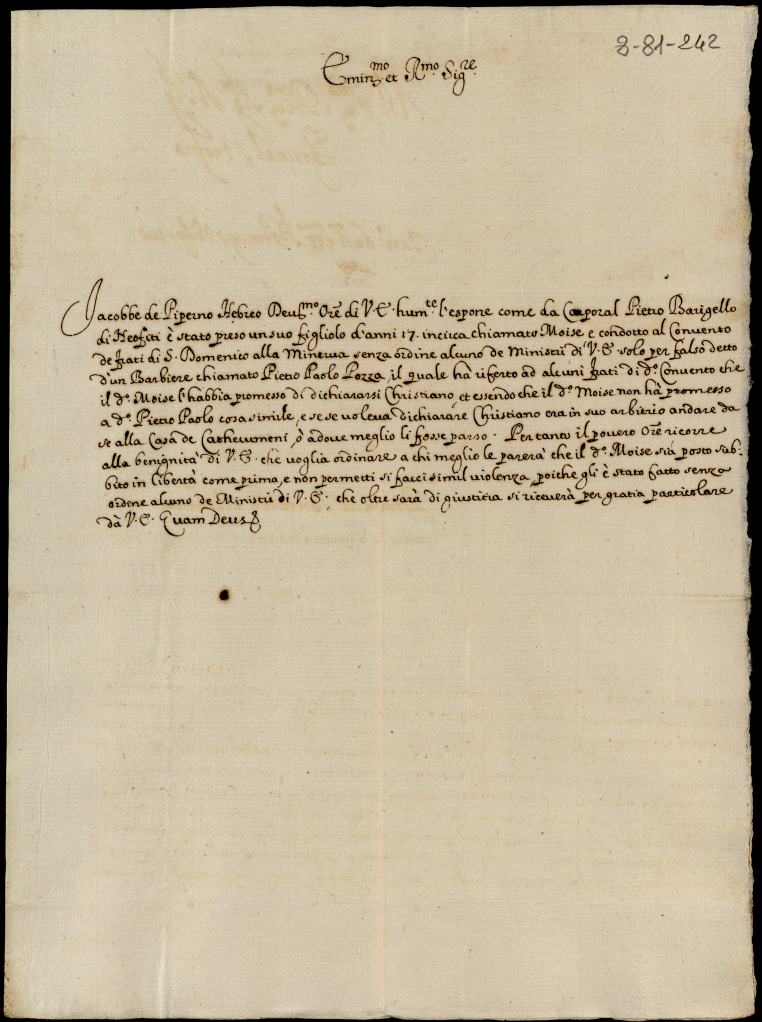 8-81-242
Emin.mo et R.mo Sig.re
Jacobbe de Piperno Hebreo Deut.mo Ore di V.E. hum.te l'espone come da Caporal Pietro Barigello
di Neofiti è stato preso un suo figliolo d'anni 17. incirca chiamato Moise e condotto al Convento
de frati di S. Domenico alla Minerva senza ordine alcuno de Ministri di V.E. solo per falso detto
d'un Barbiere chiamato Pietro Paolo Pozza, il quale hà riferto ad alcuni frati di d.o Convento che
il d.o Moise l'habbia promesso di dichiararsi Christiano, et essendo che il d.o Moise non hà promesso
a d.o Pietro Paolo cosa simile, e se se voleva dichiarare Christiano era in suo arbitrio andare da
se alla Casa de Cathecumeni, ò adove meglio li fosse parso. Per tanto il povero Ore ricorre
alla benignità di V.E. che voglia ordinare a chi meglio le parerà che il d.o Moise sia posto sub-
bito in libertà come prima, e non permetti si facci simil violenza, poiche gli è stato fatto senza
ordine alcuno de Ministri di V.E. che oltre sarà di giustitia si riceverà per gratia particolare
dà V.E. Quam Deus